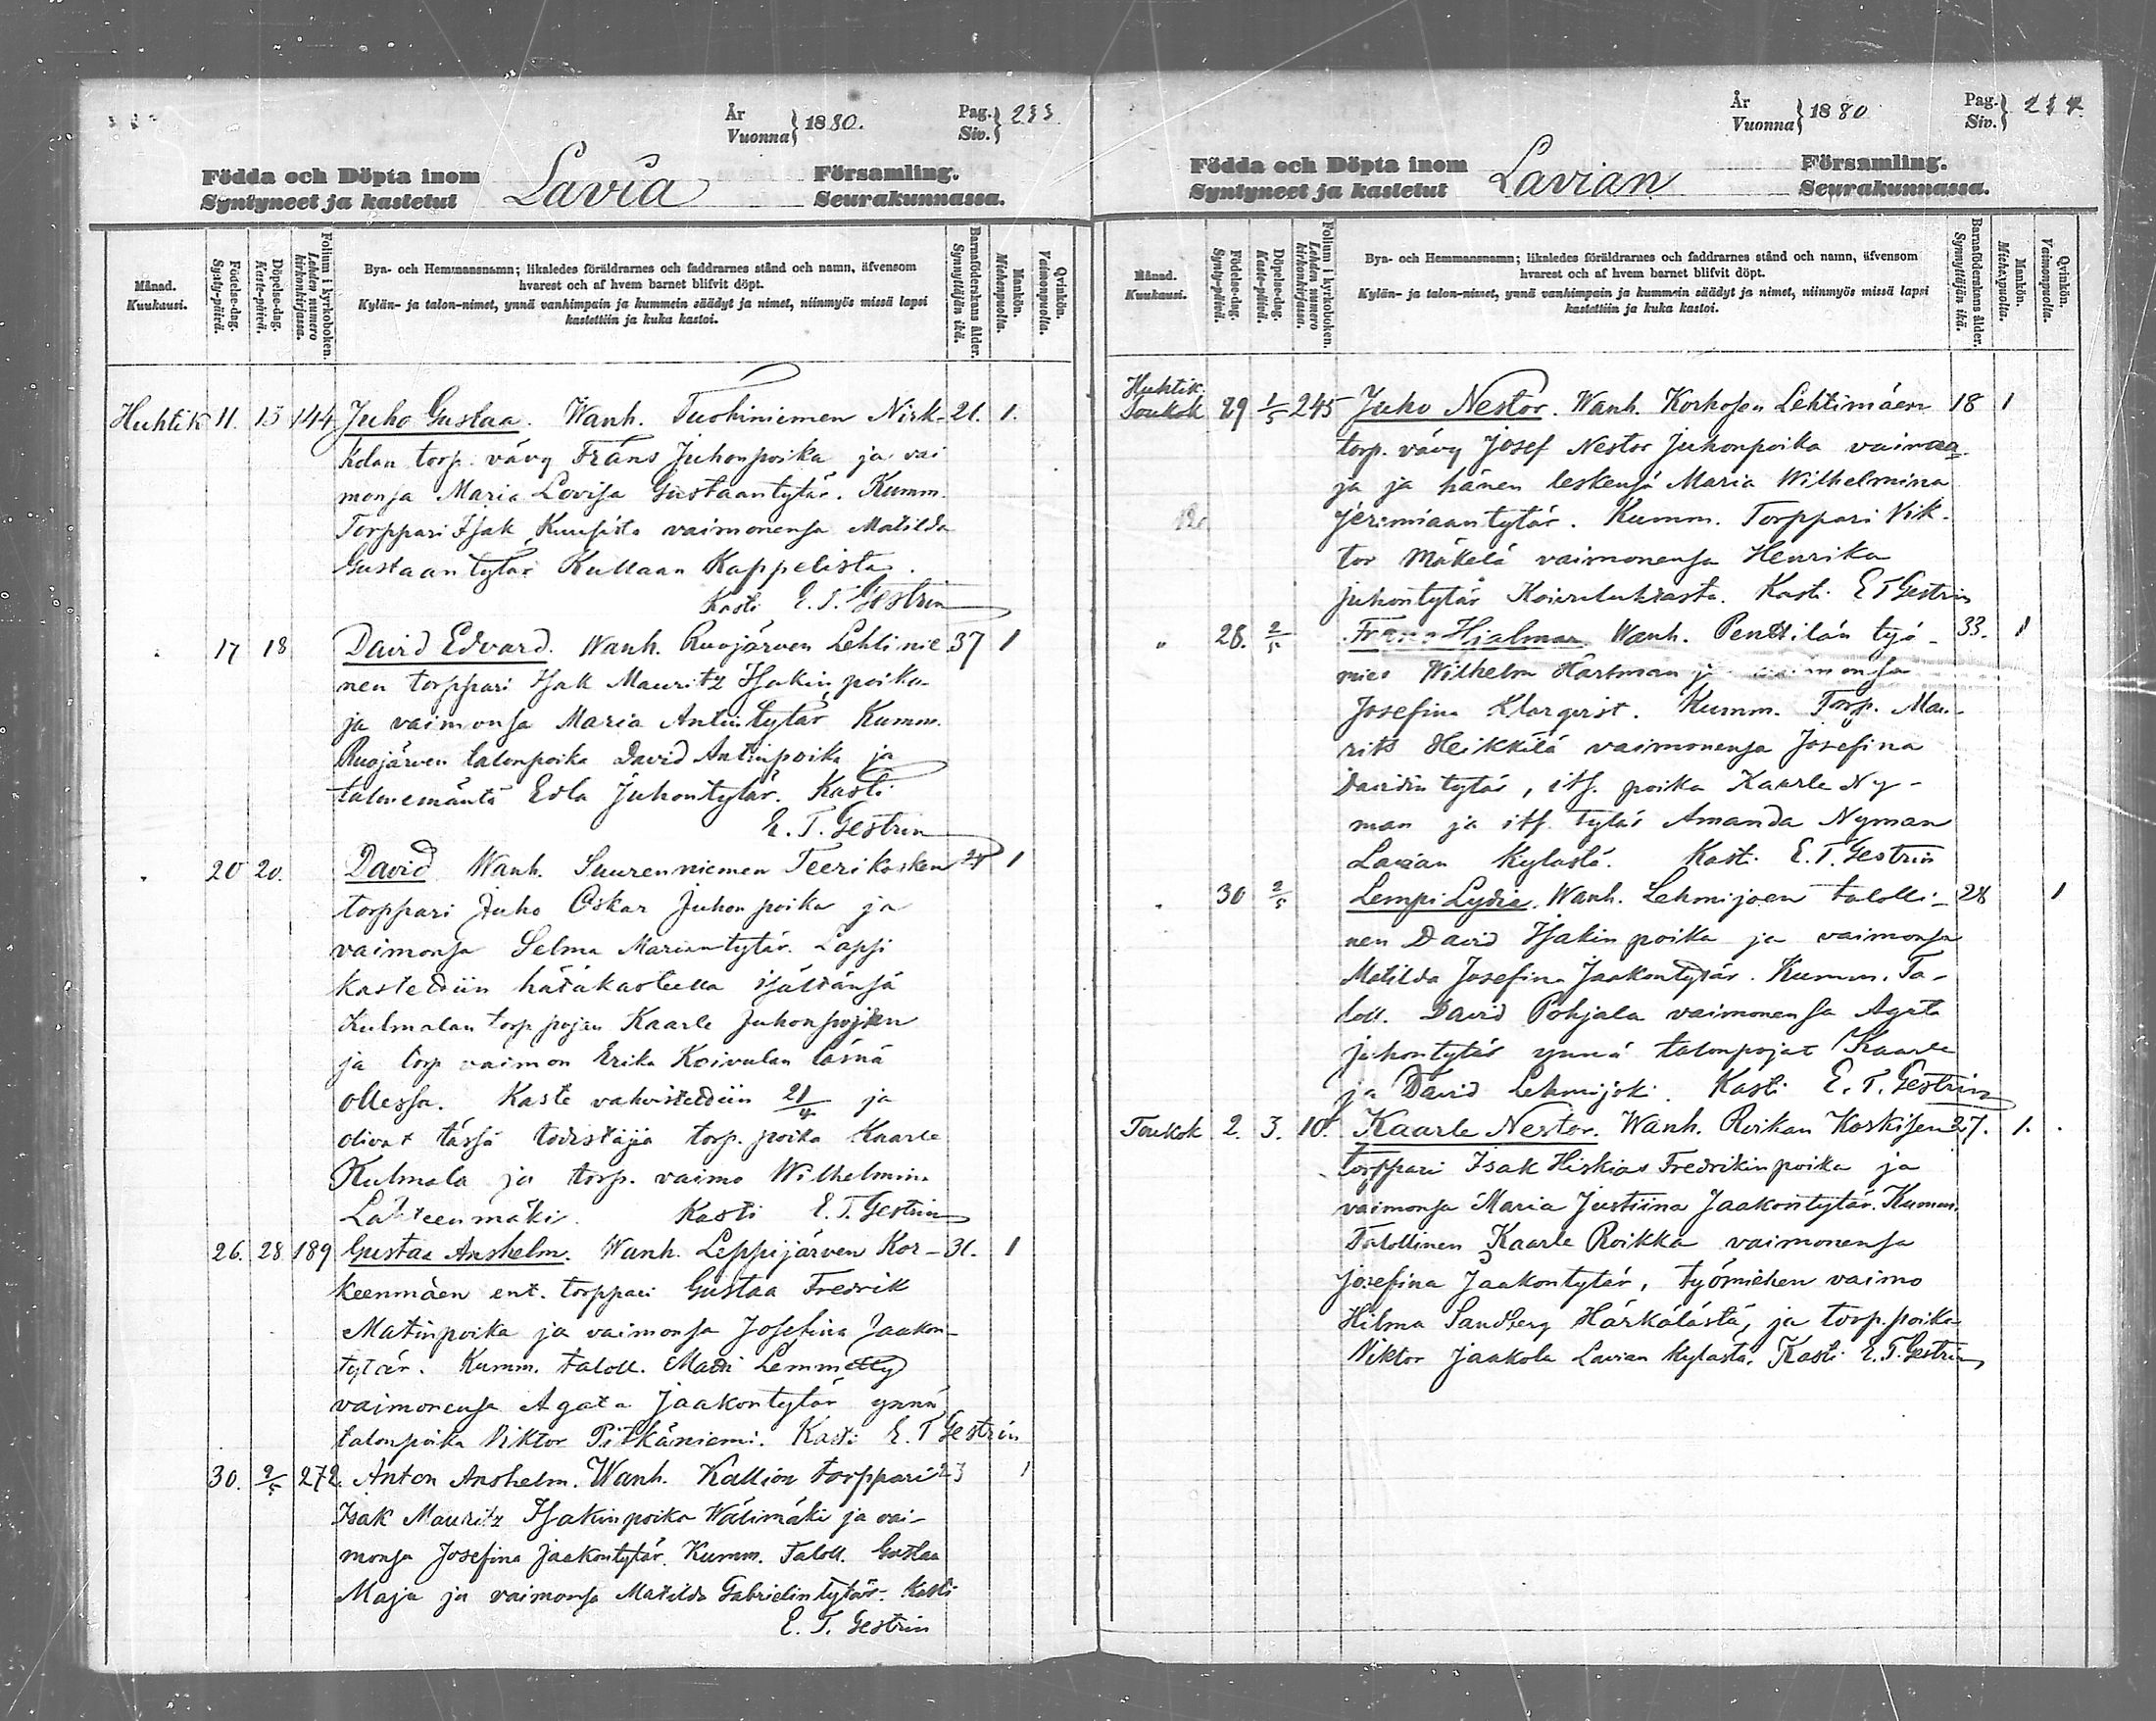 År
Vuonna } 1880. Pag. Siv. } 233
Födda och Döpta inom Lavia Församling.
Syntyneet ja kastetut Seurakunnassa.
Månad. Kuukausi.
Födelse-dag. Synty-päivä.
Döpelse-dag. Kaste-päivä.
Folium i kyrkoboken. Lehden numero kirkonkirjassa.
Bya- och Hemmansnamn; likaledes föräldrarnes och faddrarnes stånd och namn, äfvensom
hvarest och af hvem barnet blifvit döpt.
Kylän- ja talon-nimet, ynnä vanhimpain ja kummein säädyt ja nimet, niinmyös missä lapsi
kastettiin ja kuka kastoi.
Barnaföderskans ålder. Synnyttäjän ikä.
Mankön. Miehenpuolia.
Qvinkön. Vaimonpuolia.
Huhtik 11. 15 144 Juho Gustaa. Wanh. Tuohiniemen Nisk- 21. 1.
kolan torp. vävy Frans Juhonpoika ja vai
monsa Maria Lovisa Gustaantytär. Kumm.
Torppari Isak Kuusisto vaimonensa Matilda
Gustaantytär Kullaan Kappelista.
Kasti E. T. Gestrin
17 18 David Edvard. Wanh. Ruojärven Lehtinie 37 1
nen torppari Isak Mauritz Isakinpoika
ja vaimonsa Maria Antintytär Kumm.
Ruojärven talonpoika David Antinpoika ja
talonemäntä Edla Juhontytär. Kasti
E. T. Gestrin
20 20. David Wanh. Suurenniemen Teerikosken 1
torppari Juho Oskar Juhonpoika ja
vaimonsa Selma Mariantytär. Lapsi
kastettiin hätäkasteella isältänsä
Kulmalan torp pojan Kaarle Juhonpojan
ja torp vaimon Erika Koivulan läsnä
ollessa. Kaste vahvistettiin 21/4 ja
olivat tässä todistajia torp. poika Kaarle
Kulmala ja torp. vaimo Wilhelmina
Lähteenmäki. Kasti E. T. Gestrin
26. 28 189 Gustaa Anshelm. Wanh. Leppijärven Kor- 31. 1
keenmäen ent. torppari Gustaa Fredrik
Matinpoika ja vaimonsa Josefina Jaakon-
tytär. Kumm. taloll. Matti Lemmetty
vaimonensa Agata Jaakontytär ynnä
talonpoika Viktor Pitkäniemi. Kasti E. T Gestrin
30. 2/5 272. Anton Anshelm. Wanh. Kallion torppari 23 1
Isak Mauritz Isakinpoika Wälimäki ja vai-
monsa Josefina Jaakontytär. Kumm. Taloll. Gustaa
Maja ja vaimonsa Matilda Gabrielintytär. Kasti
E. T. Gestrin
År
Vuonna } 1880 Pag. Siv. } 234.
Födda och Döpta inom Lavian Församling.
Syntyneet ja kastetut Seurakunnassa.
Månad. Kuukausi.
Födelse-dag. Synty-päivä.
Döpelse-dag. Kaste-päivä.
Folium i kyrkoboken. Lehden numero kirkonkirjassa.
Bya- och Hemmansnamn; likaledes föräldrarnes och faddrarnes stånd och namn, äfvensom
hvarest och af hvem barnet blifvit döpt.
Kylän- ja talon-nimet, ynnä vanhimpain ja kummein säädyt ja nimet, niinmyös missä lapsi
kastettiin ja kuka kastoi.
Barnaföderskans ålder. Synnyttäjän ikä.
Mankön. Miehenpuolia.
Qvinkön. Vaimonpuolia.
Huhtik.
Toukok 29 1/5 245 Juho Nestor. Wanh. Korhosen Lehtimäen 18 1
torp. vävy Josef Nestor Juhonpoika vainaa
ja ja hänen leskensä Maria Wilhelmina
Jerimiaantytär. Kumm. Torppari Vik-
tor Mäkelä vaimonensa Henrika
Juhontytär Kasti E T Gestrin
" 28. 2/5 Frans Hjalmar Wanh. Penttilän työ- 33. 1
mies Wilhelm Hartman ja vaimonsa
Josefina Klarqvist. Kumm. Torp. Mau-
rits Heikkilä vaimonensa Josefina
Davidin tytär, its. poika Kaarle Ny-
man ja its. tytär Amanda Nyman
Lavian Kylästä. Kasti E. T. Gestrin
30 2/5 Lempi Lydia. Wanh. Lehmijoen talolli- 28 1
nen David Isakinpoika ja vaimonsa
Matilda Josefina Jaakontytär. Kumm. Ta-
loll. David Pohjala vaimonensa Agata
Juhontytär ynnä talonpojat Kaarle
ja David Lehmijoki. Kasti E. T. Gestrin
Toukok 2. 3. 10. Kaarle Nestor. Wanh. Roikan Koskisen 27. 1.
torppari Isak Hiskias Fredrikinpoika ja
vaimonsa Maria Justiina Jaakontytär. Kumm.
Talollinen Kaarle Roikka vaimonensa
Josefina Jaakontytär, työmiehen vaimo
Hilma Sandberg Härkälästä, ja torp. poika
Viktor Jaakola Lavian kylästä. Kasti E. T. Gestrin